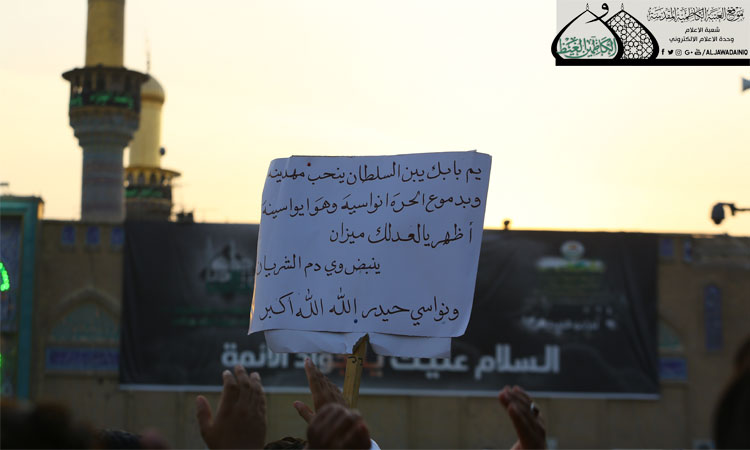 موقع العتبة الكاظمية المقدسة
شعبة الاعلام
وحدة الاعلام الالكتروني
/ ALJAWADAINIQ
يم بابك يبن السلطان ينحب مهدينه
وبدموع الحره انواسيه وهوا يواسينه
أظهر يالعدلك ميزان
ينبض وي دم الشريان
ونواسي حيدر الله الله أكبر
السلام عليك يا جواد الأئمة